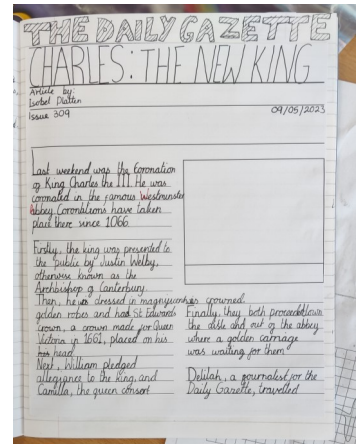 THE DAILY GAZETTE
CHARLES: THE NEW KING
Article by:
Isobel Platten
Issue 309
09/05/2023
Last weekend was the Coronation
of King Charles the III. He was
coronated in the famous Westminster
Abbey. Coronations have taken
place there since 1066.
Firstly, the king was presented to
the public by Justin Welby,
otherwise known as the
Archbishop of Canterbury.
Then, he was dressed in
golden robes and had St Edwards
crown, a crown made for Queen
Victoria in 1661, placed on his
head.
Next, William pledged
allegiance to the king, and
Camilla, the queen consort
was crowned.
Finally, they both proceeded down
the aisle and out of the abbey
where a golden carriage
was waiting for them.
Delilah, a journalist for the
Daily Gazette, travelled